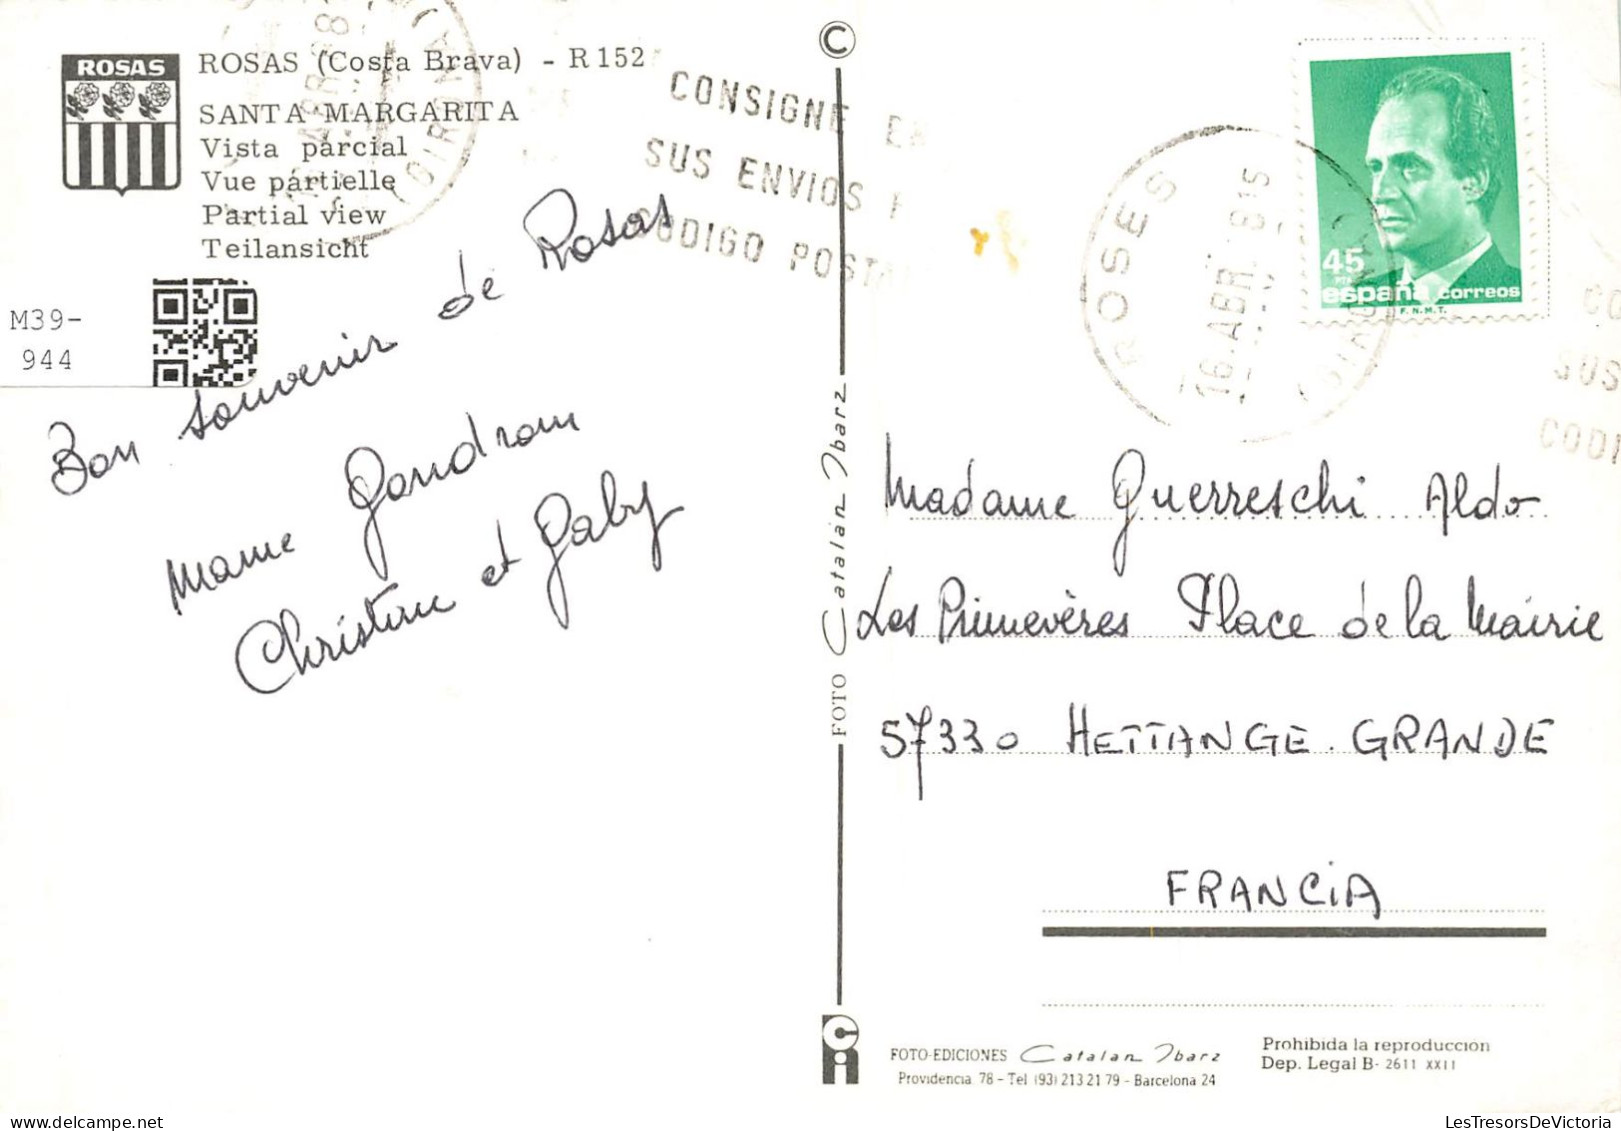 ROSAS
ROSAS (Costa Brava) - R 152
SANTA MARGARITA
Vista parcial
Vue partielle
Partial view
Teilansicht
M39-
944
CONSIGNE EN
SUS ENVIOS
CODIGO POSTA
Bon souvenir de Rosas
Mame Gandrom
Christian et Gaby
©
FOTO Catalan Ibarz
ROSES
16 ABR.
(GIRONA)
45
PTA
españa correos
F.N.M.T.
CO
SUS
CODI
Madame Guerreschi Aldo
Les Primevères Place de la Mairie
57330 HETTANGE. GRANDE
FRANCIA
FOTO-EDICIONES Catalan Ibarz
Providencia 78 - Tel (93) 213 21 79 - Barcelona 24
Prohibida la reproduccion
Dep. Legal B- 2611 XXII
LesTresorsDeVictoria.com